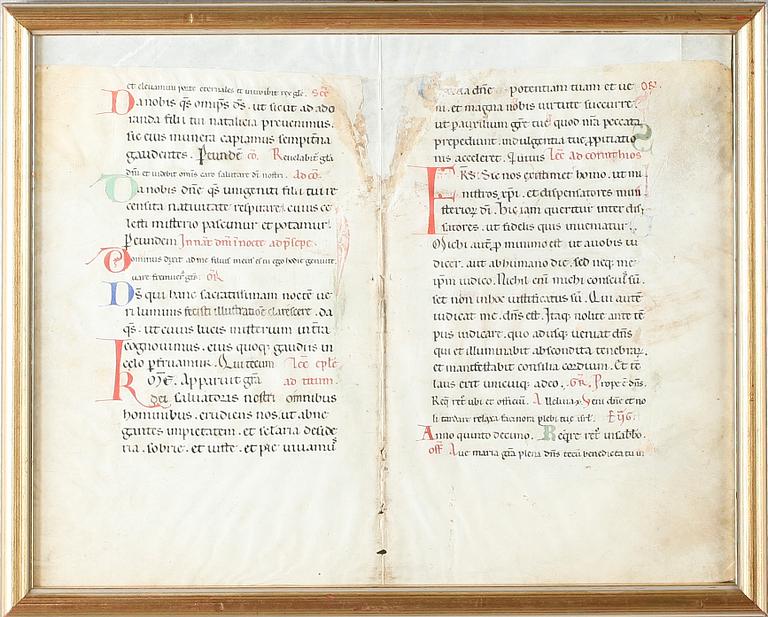 et elevamini porte eternales et introibit rex glę. Sec̃
Da nobis q̃s omip̃s d̃s. ut sicut ad ado
randa filii tui natalicia prevenimus.
sic eius munera capiamus sempit̃na
gaudentes. Peundẽ cõ. Revelabit᷑ gl̃a
dñi et videbit omis caro salutare di nostri. ad cõ.
Da nobis dñe q̃s unigeniti filii tui re
censita nativitate respirare. cuius ce
lesti misterio pascimur et potamur.
Peundem In nat̃ dñi in nocte ad p̃sepe.
Dominus dixit ad me filius meus es tu ego hodie genui te.
uare fremuer̃ g̃s. OR̃
D̃s qui hanc sacratissimam noctẽ ve
ri luminis fecisti illustratione clarescere. da
q̃s. ut cuius lucis misterium in t̃ra
cognovimus. eius quoq; gaudiis in
celo p̃fruamur. Qui tecum Lec̃ epl̃e
KR̃OM̃E. Apparuit gr̃a ad titum.
dei salvatoris nostri omnibus
hominibus. erudiens nos. ut abne
gantes impietatem. et sclaria deside
ria. sobrie. et iuste. et pie vivamus
dñe potentiam tuam et ve OR̃.
ni. et magna nobis virtute succurre.
ut p auxilium gr̃e tuę quod nr̃a peccata
prepediunt. indulgentia tuę p̱pitiatio
nis acceleret. Qui vivis Lec̃ ad corinthios
FR̃S. Sic nos existimet homo. ut mi
nistros xp̃i. et dispensatores mini
sterioꝝ di. Hic iam queritur inter dis
satores. ut fidelis quis inveniatur.
Michi aut̃ p minimo est. ut a vobis iu
dicer. aut ab humano die. sed neq; me
ip̃m iudico. Nichil eñi michi conscius sũ.
set non in hoc iustificatus sũ. Qui autẽ
iudicat me. dñs est. Itaq; nolite ante tẽ
pus iudicare. quo adusq; veniat dñs
qui et illuminabit abscondita tenebrar̃.
et manifestabit consilia cordium. Et tc̃
laus erit unicuiq; a deo. GR̃. Prope ẽ dñs.
Req̃ ret̃ ubi et officiũ. Alleluia. Veni dñe et no
li tardare relaxa facinora plebi tuę isrl. Eug̃.
Anno quinto decimo. Reqre ret̃ in sabbo.
off̃ Ave maria gr̃a plena dñs tecũ benedicta tu in